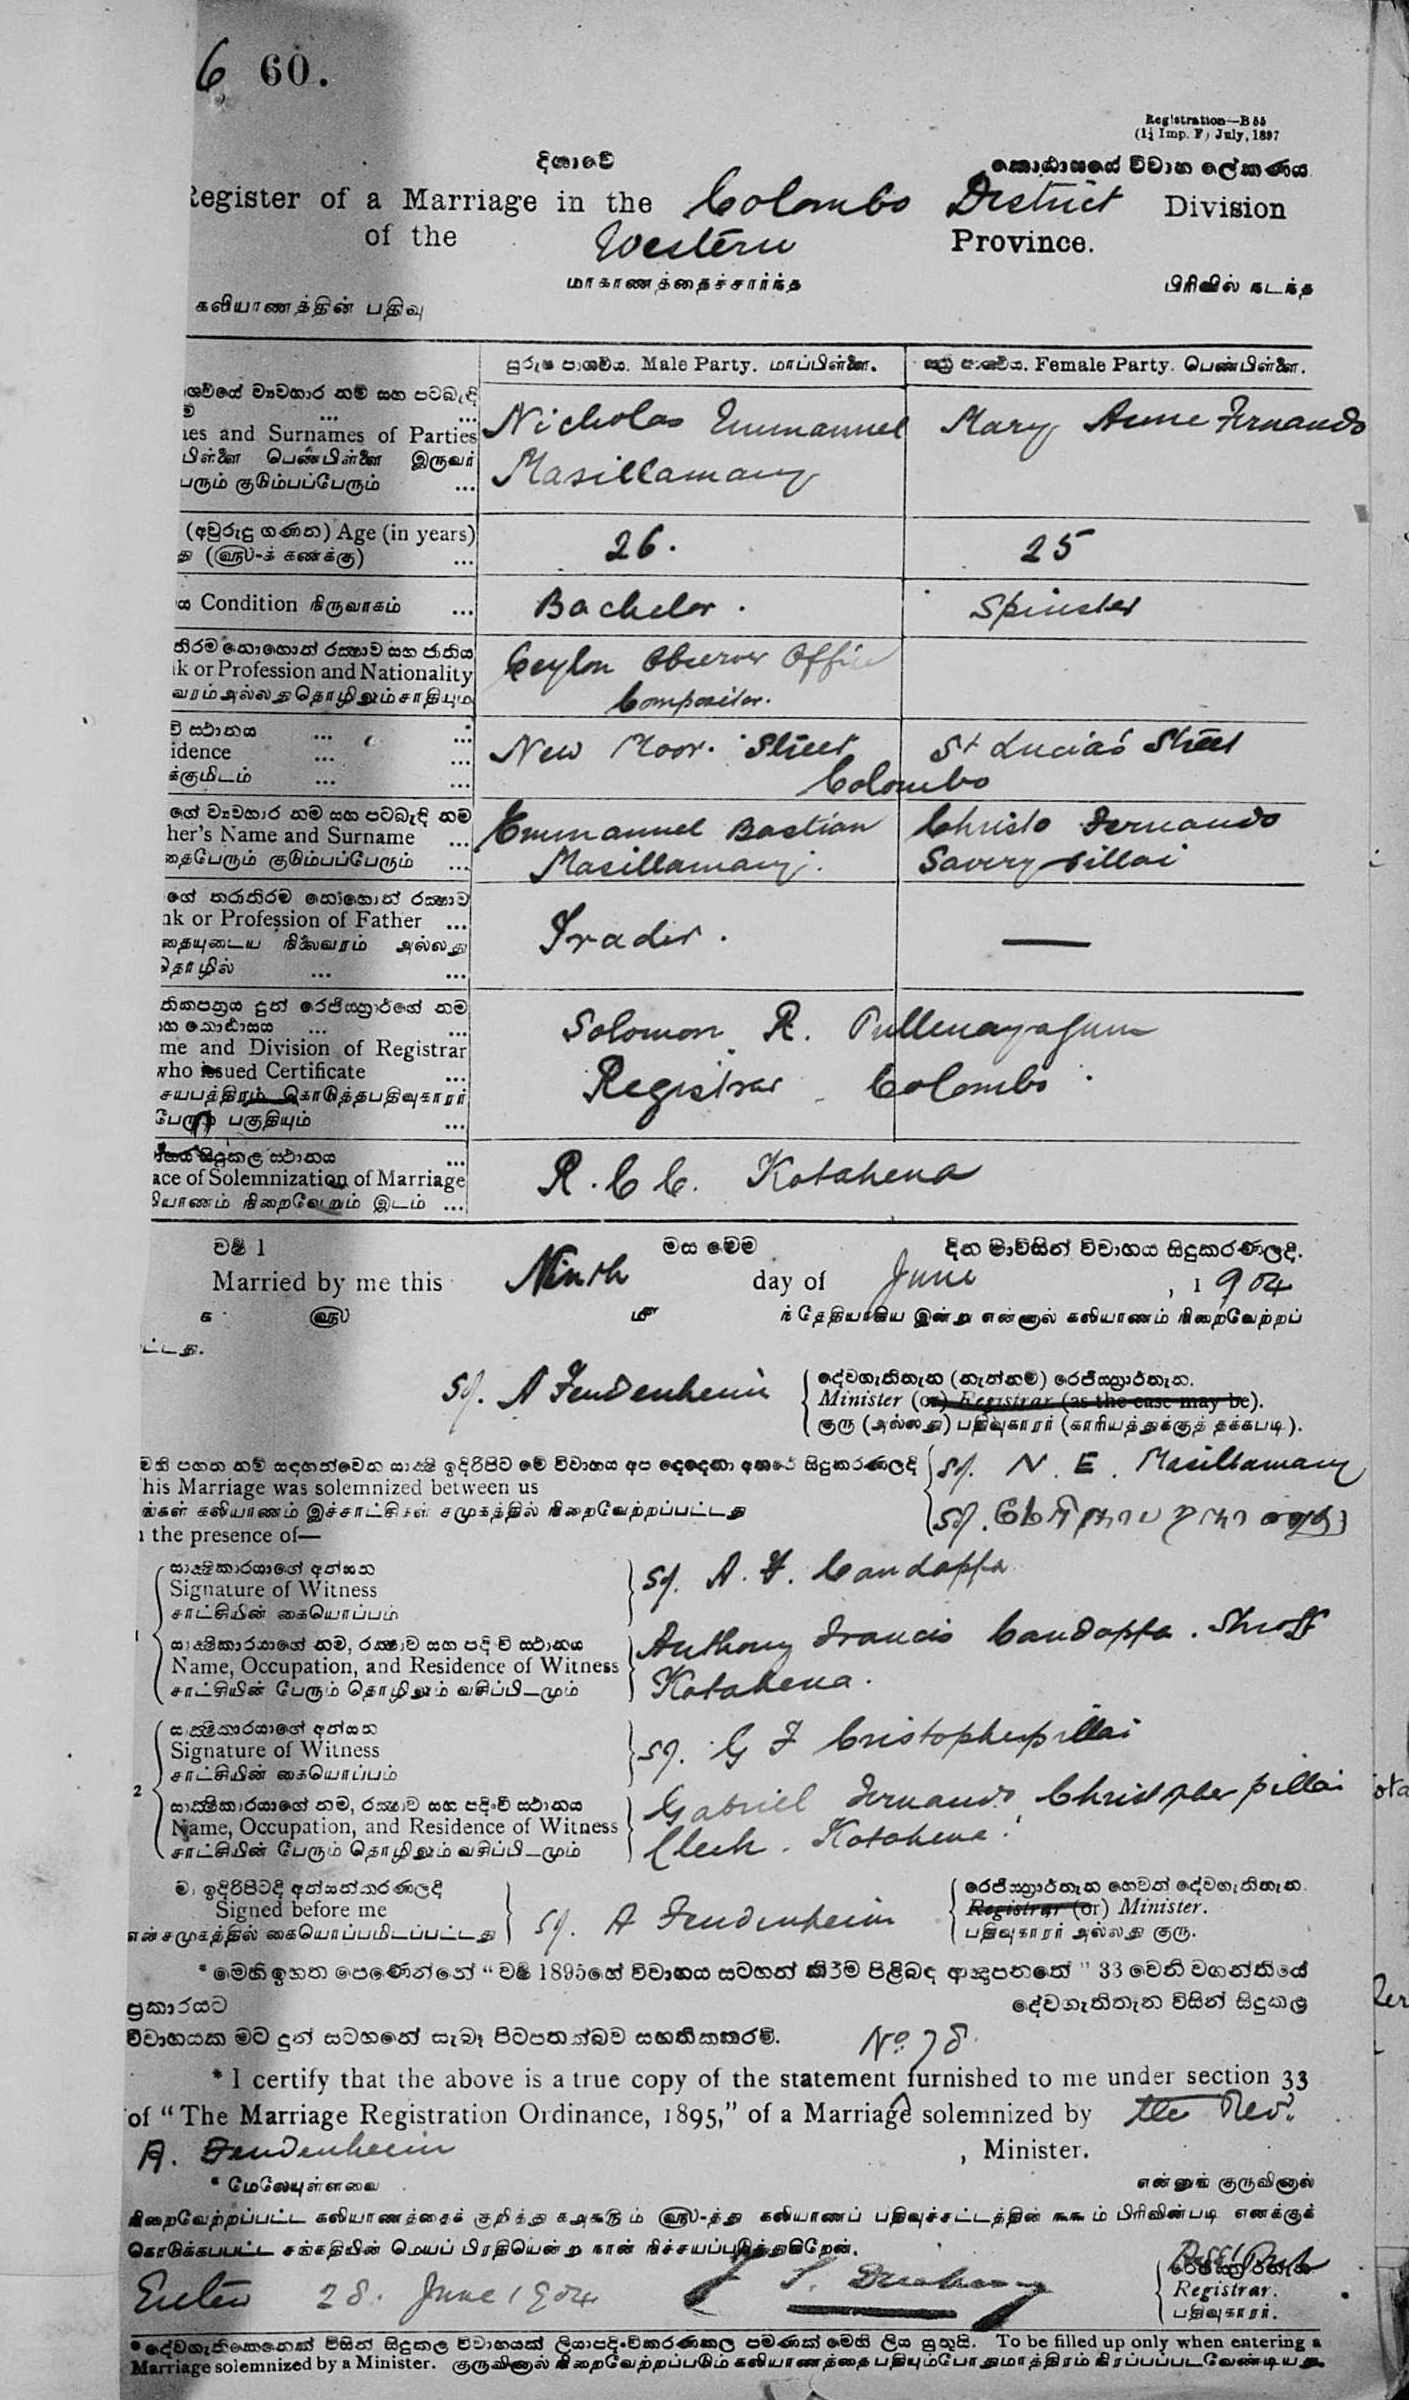 6 60.
Registration—B 55
(1½ Imp. F) July, 1897
දිශාවේ කොඨාසයේ විවාහ ලේකණය
Register of a Marriage in the Colombo District Division
of the Western Province.
மாகாணத்தைச்சார்ந்த பிரிவில் நடந்த
கலியாணத்தின் பதிவு
පුරුෂ පාශ්වීය. Male Party. மாப்பிள்ளை. ස්ත්‍රී පාශ්වීය. Female Party. பெண்பிள்ளை.
ශවීයේ ව්‍යවහාර නම් සහ පටබැඳි
ම ... ...
nes and Surnames of Parties Nicholas Immanuel Mary Anne Fernando
பிள்ளை பெண்பிள்ளை இருவர் Masillamany
பரும் குடும்பப்பேரும் ...
(අවුරුදු ගණන) Age (in years) 26. 25
த (௵-க் கணக்கு) ...
ය Condition நிருவாகம் ... Bachelor. Spinster
තිරම නොහොත් රක්ෂාව සහ ජාතිය
nk or Profession and Nationality Ceylon Observer Office
வரம் அல்லது தொழிலும் சாதியும் Compositor.
ව ස්ථානය ... ...
idence ... ... New Moor. Street St Lucia's Street
க்குமிடம் ... ... Colombo
ගේ ව්‍යවහාර නම සහ පටබැඳි නම
her's Name and Surname ... Emmanuel Bastian Christo Fernando
தைபேரும் குடும்பப்பேரும் ... Masillamany. Savery Pillai
ගේ තරාතිරම නොහොත් රක්ෂාව
nk or Profession of Father ... Trader. —
தையுடைய நிலவரம் அல்லது
தொழில் ... ...
තිකපත්‍රය දුන් රෙජිස්ත්‍රාර්ගේ නම
හ කොඨාසය ... ...
me and Division of Registrar Solomon R. Pullenayagum
who issued Certificate ... Registrar Colombo.
சயபத்திரம் கொடுத்தபதிவுகாரர்
பேரும் பகுதியும் ...
සිදුකල ස්ථානය ...
ace of Solemnization of Marriage R. C C. Kotahena
லியாணம் நிறைவேறும் இடம் ...
වර්ෂ 1 මස මෙම දින මාවිසින් විවාහය සිදුකරණලදි.
Married by me this Ninth day of June , 1904
௵ ந் தேதியாகிய இன்று என்னால் கலியாணம் நிறைவேற்றப்
பட்டது.
Sg. A Fendenheim
දේවගැතිතැන (නැත්නම්) රෙජිස්ත්‍රාර්තැන.
Minister (or) Registrar (as the case may be).
குரு (அல்லது) பதிவுகாரர் (காரியத்துக்குத் தக்கபடி).
මෙහි පහත නම් සඳහන්වෙන සාක්ෂි ඉදිරිපිට මේ විවාහය අප දෙදෙනා අතරේ සිදුකරණලදි Sg. N. E. Masillamany
his Marriage was solemnized between us
ங்கள் கலியாணம் இச்சாட்சிகள் சமுகத்தில் நிறைவேற்றப்பட்டது Sg.
n the presence of—
සාක්ෂිකාරයාගේ අත්සන
Signature of Witness Sg. A. F. Candappa
சாட்சியின் கையொப்பம்
1 සාක්ෂිකාරයාගේ නම, රක්ෂාව සහ පදිංචි ස්ථානය
Name, Occupation, and Residence of Witness Anthony Francis Candappa. Shroff
சாட்சியின் பேரும் தொழிலும் வசிப்பிடமும் Kotahena.
සාක්ෂිකාරයාගේ අත්සන
Signature of Witness Sg. G F Cristopherpillai
சாட்சியின் கையொப்பம்
2 සාක්ෂිකාරයාගේ නම, රක්ෂාව සහ පදිංචි ස්ථානය
Name, Occupation, and Residence of Witness Gabriel Fernando Christopher pillai
சாட்சியின் பேரும் தொழிலும் வசிப்பிடமும் Clerk. Kotahena.
මා ඉදිරිපිටදි අත්සන්කරණලදි රෙජිස්ත්‍රාර්තැන හෙවත් දේවගැතිතැන.
Signed before me Sg. A Fendenheim Registrar (or) Minister.
என் சமுகத்தில் கையொப்பமிடப்பட்டது பதிவுகாரர் அல்லது குரு.
* මෙහි ඉහත පෙණෙන්නේ “වර්ෂ 1895හේ විවාහය සටහන් කිරීම පිළිබඳ ආඥාපනතේ” 33 වෙනි වගන්තියේ
ප්‍රකාරයට දේවගැතිතැන විසින් සිදුකල
විවාහයක මට දුන් සටහනේ සැබෑ පිටපතක්බව සහතිකකරමි. No. 78.
* I certify that the above is a true copy of the statement furnished to me under section 33
of “The Marriage Registration Ordinance, 1895,” of a Marriage solemnized by the Rev.
A. Fendenheim , Minister.
* மேலேயுள்ளவை என்னுங் குருவினால்
நிறைவேற்றப்பட்ட கலியாணத்தைக் குறித்து ௧௮௯௫ம் ௵-த்து கலியாணப் பதிவுச்சட்டத்தின் ௩௩ம் பிரிவின்படி எனக்குக்
கொடுக்கப்பட்ட சங்கதியின் மெய்ப் பிரதியென்று நான் நிச்சயப்படுத்துகிறேன்.
රෙජිස්ත්‍රාර්තැන
28. June 1904 Registrar.
பதிவுகாரர்.
* දේවගැතිකෙනෙක් විසින් සිදුකල විවාහයක් ලියාපදිංචිකරණකල පමණක් මෙහි ලිය යුතුයි. To be filled up only when entering a
Marriage solemnized by a Minister. குருவினால் நிறைவேற்றப்படும் கலியாணத்தை பதியும்போதுமாத்திரம் நிரப்பப்படவேண்டியது.